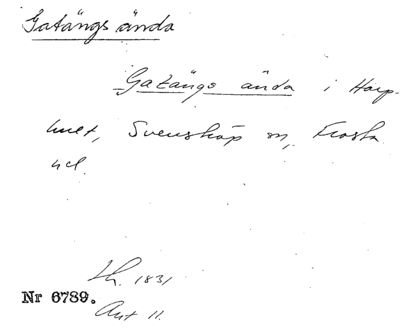 Gatängs ända
Gatängs ända i Harp-
huet, Svensköp sn, Frosta
hd.
Lh. 1831
Nr 6789.
Akt 11.